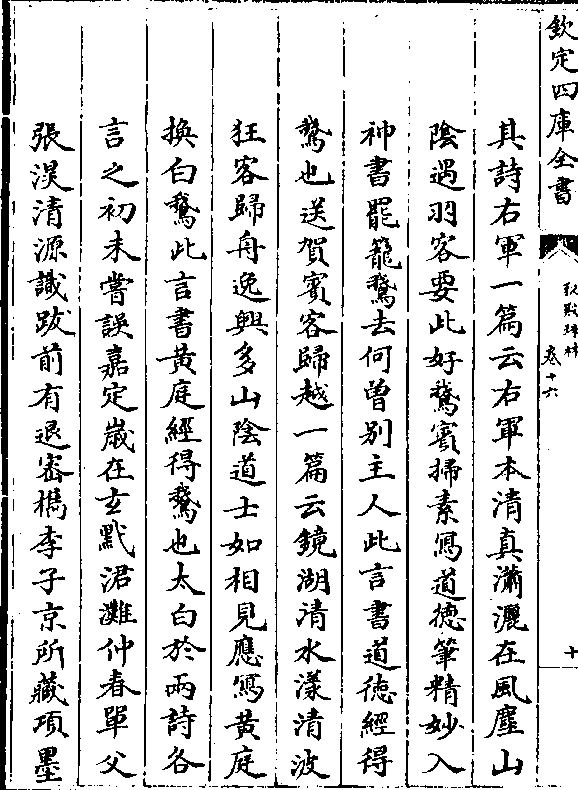 欽定四庫全書
卷十六
十
其詩右軍一篇云右軍本清真瀟灑在風塵山
陰遇羽客要此好鵞賔掃素寫道徳筆精妙入
神書罷籠鵞去何曽别主人此言書道徳經得
鵞也送賀賓客歸越一篇云鏡湖清水漾清波
狂客歸舟逸興多山陰道士如相見應寫黄庭
換白鵞此言書黄庭經得鵞也太白於兩詩各
言之初未嘗誤嘉定嵗在玄黓涒灘仲春單父
張淏清源識跋前有退宻檇李子京所藏項墨